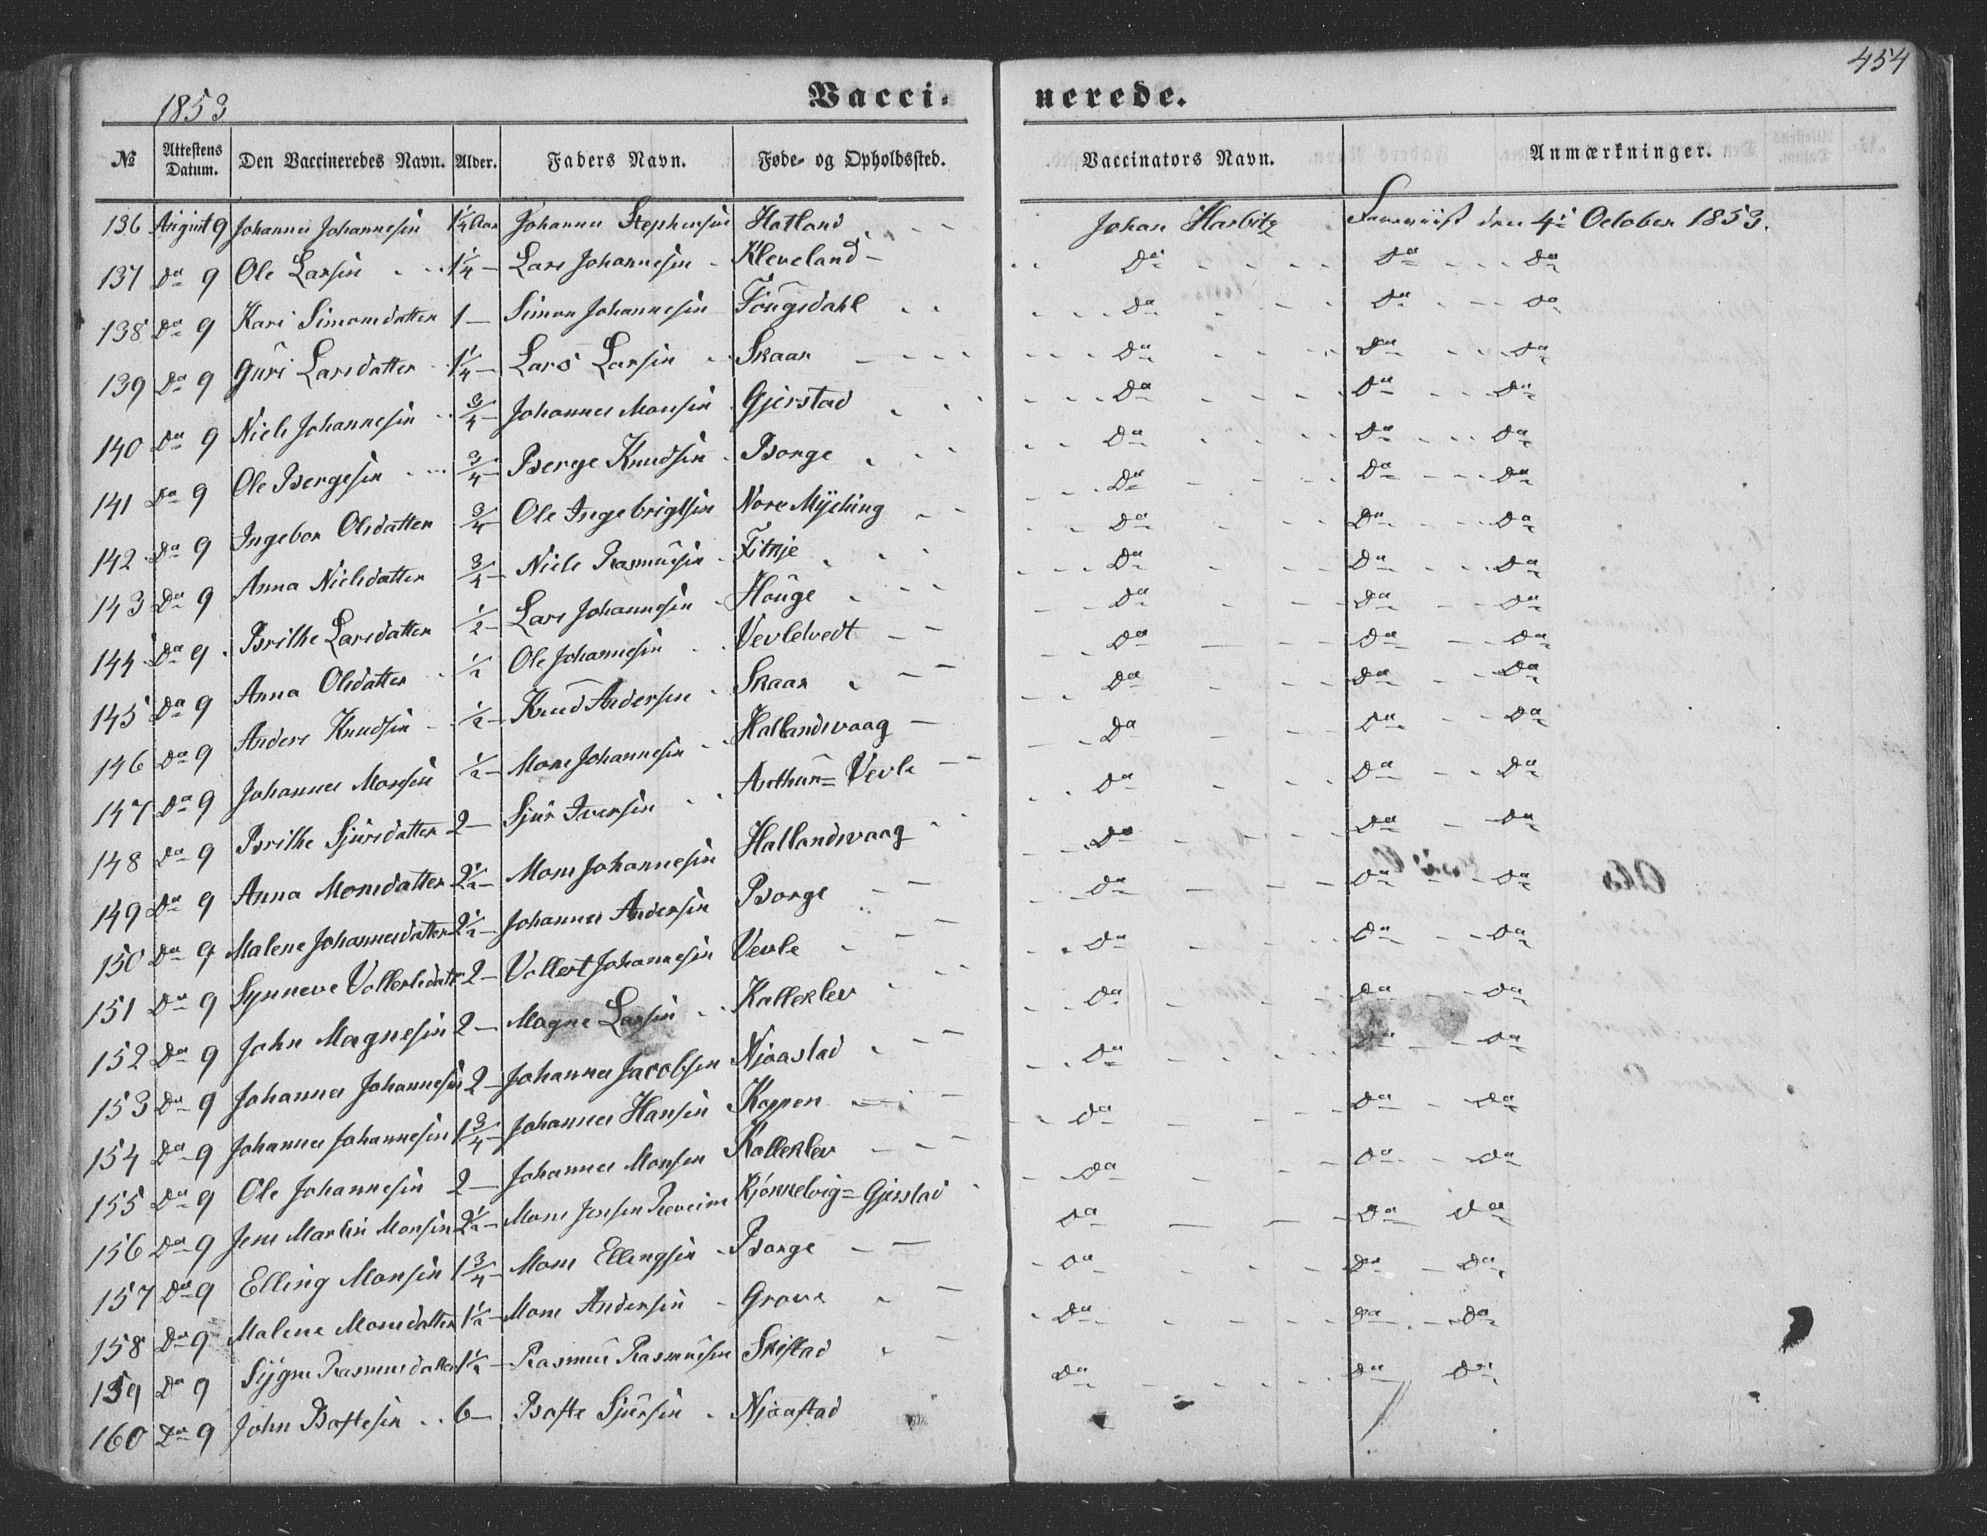 454
1853
Vacci-nerede.
№ Attestens Datum. Den Vaccineredes Navn. Alder. Faders Navn. Føde- og Opholdssted. Vaccinators Navn. Anmærkninger.
136 August 9 Johannes Johannesen 1¼ Aar Johannes Stephensen Hatland - - Johan Harbitz den 4de October 1853.
137 Do 9 Ole Larsen 1¼ - Lars Johannesen Kleveland - Do Do Do
138 Do 9 Kari Simonsdatter 1 - Simon Johannesen Fougsdahl Do Do Do
139 Do 9 Guri Larsdatter 1¼ - Lars Larsen Skaar Do Do Do
140 Do 9 Niels Johannesen ¾ - Johannes Monsen Gjerstad Do Do Do
141 Do 9 Ole Bergesen ¾ - Berge Knudsen Borge Do Do Do
142 Do 9 Ingebor Olsdatter ¾ - Ole Ingebrigtsen Nore Myching Do Do Do
143 Do 9 Anna Nielsdatter ¾ - Niels Rasmusen Fitkje Do Do Do
144 Do 9 Brithe Larsdatter ½ - Lars Johannesen Houge Do Do Do
145 Do 9 Anna Olsdatter ½ Ole Johannesen Vevletvedt Do Do Do
146 Do 9 Anders Knudsen ½ - Knud Andersen Skaar Do Do Do
147 Do 9 Johannes Monsen ½ - Mons Johannesen Hatlandsvaag Do Do Do
148 Do 9 Brithe Sjursdatter 2 - Sjur Iversen Arthun= Vevle Do Do Do
149 Do 9 Anna Monsdatter 2½ - Mons Johannesen Hatlandsvaag Do Do Do
150 Do 9 Malene Johannesdatter 2½ - Johannes Andersen Borge Do Do Do
151 Do 9 Synneve Vallertsdatter 2 - Vallert Johannesen Vevle Do Do Do
152 Do 9 John Magnesen 2 - Magne Larsen Kalleklev Do Do Do
153 Do 9 Johannes Johannesen 2 - Johannes Jacobsen Njaastad Do Do Do
154 Do 9 Johannes Johannesen 1¾ - Johannes Hansen Koppen Do Do Do
155 Do 9 Ole Johannesen 2 - Johannes Monsen Kalleklev Do Do Do
156 Do 9 Jens Martin Monsen 2½ - Mons Jensen Reveim Kjønnelvig= Gjerstad Do Do Do
157 Do 9 Elling Monsen 1¾ - Mons Ellingsen Borge Do Do Do
158 Do 9 Malene Monsdatter 1½ - Mons Andersen Grove Do Do Do
159 Do 9 Sygne Rasmusdatter 1½ - Rasmus Rasmusen Skistad Do Do Do
160 Do 9 John Boftesen 6 - Bofte Sjursen Njaastad